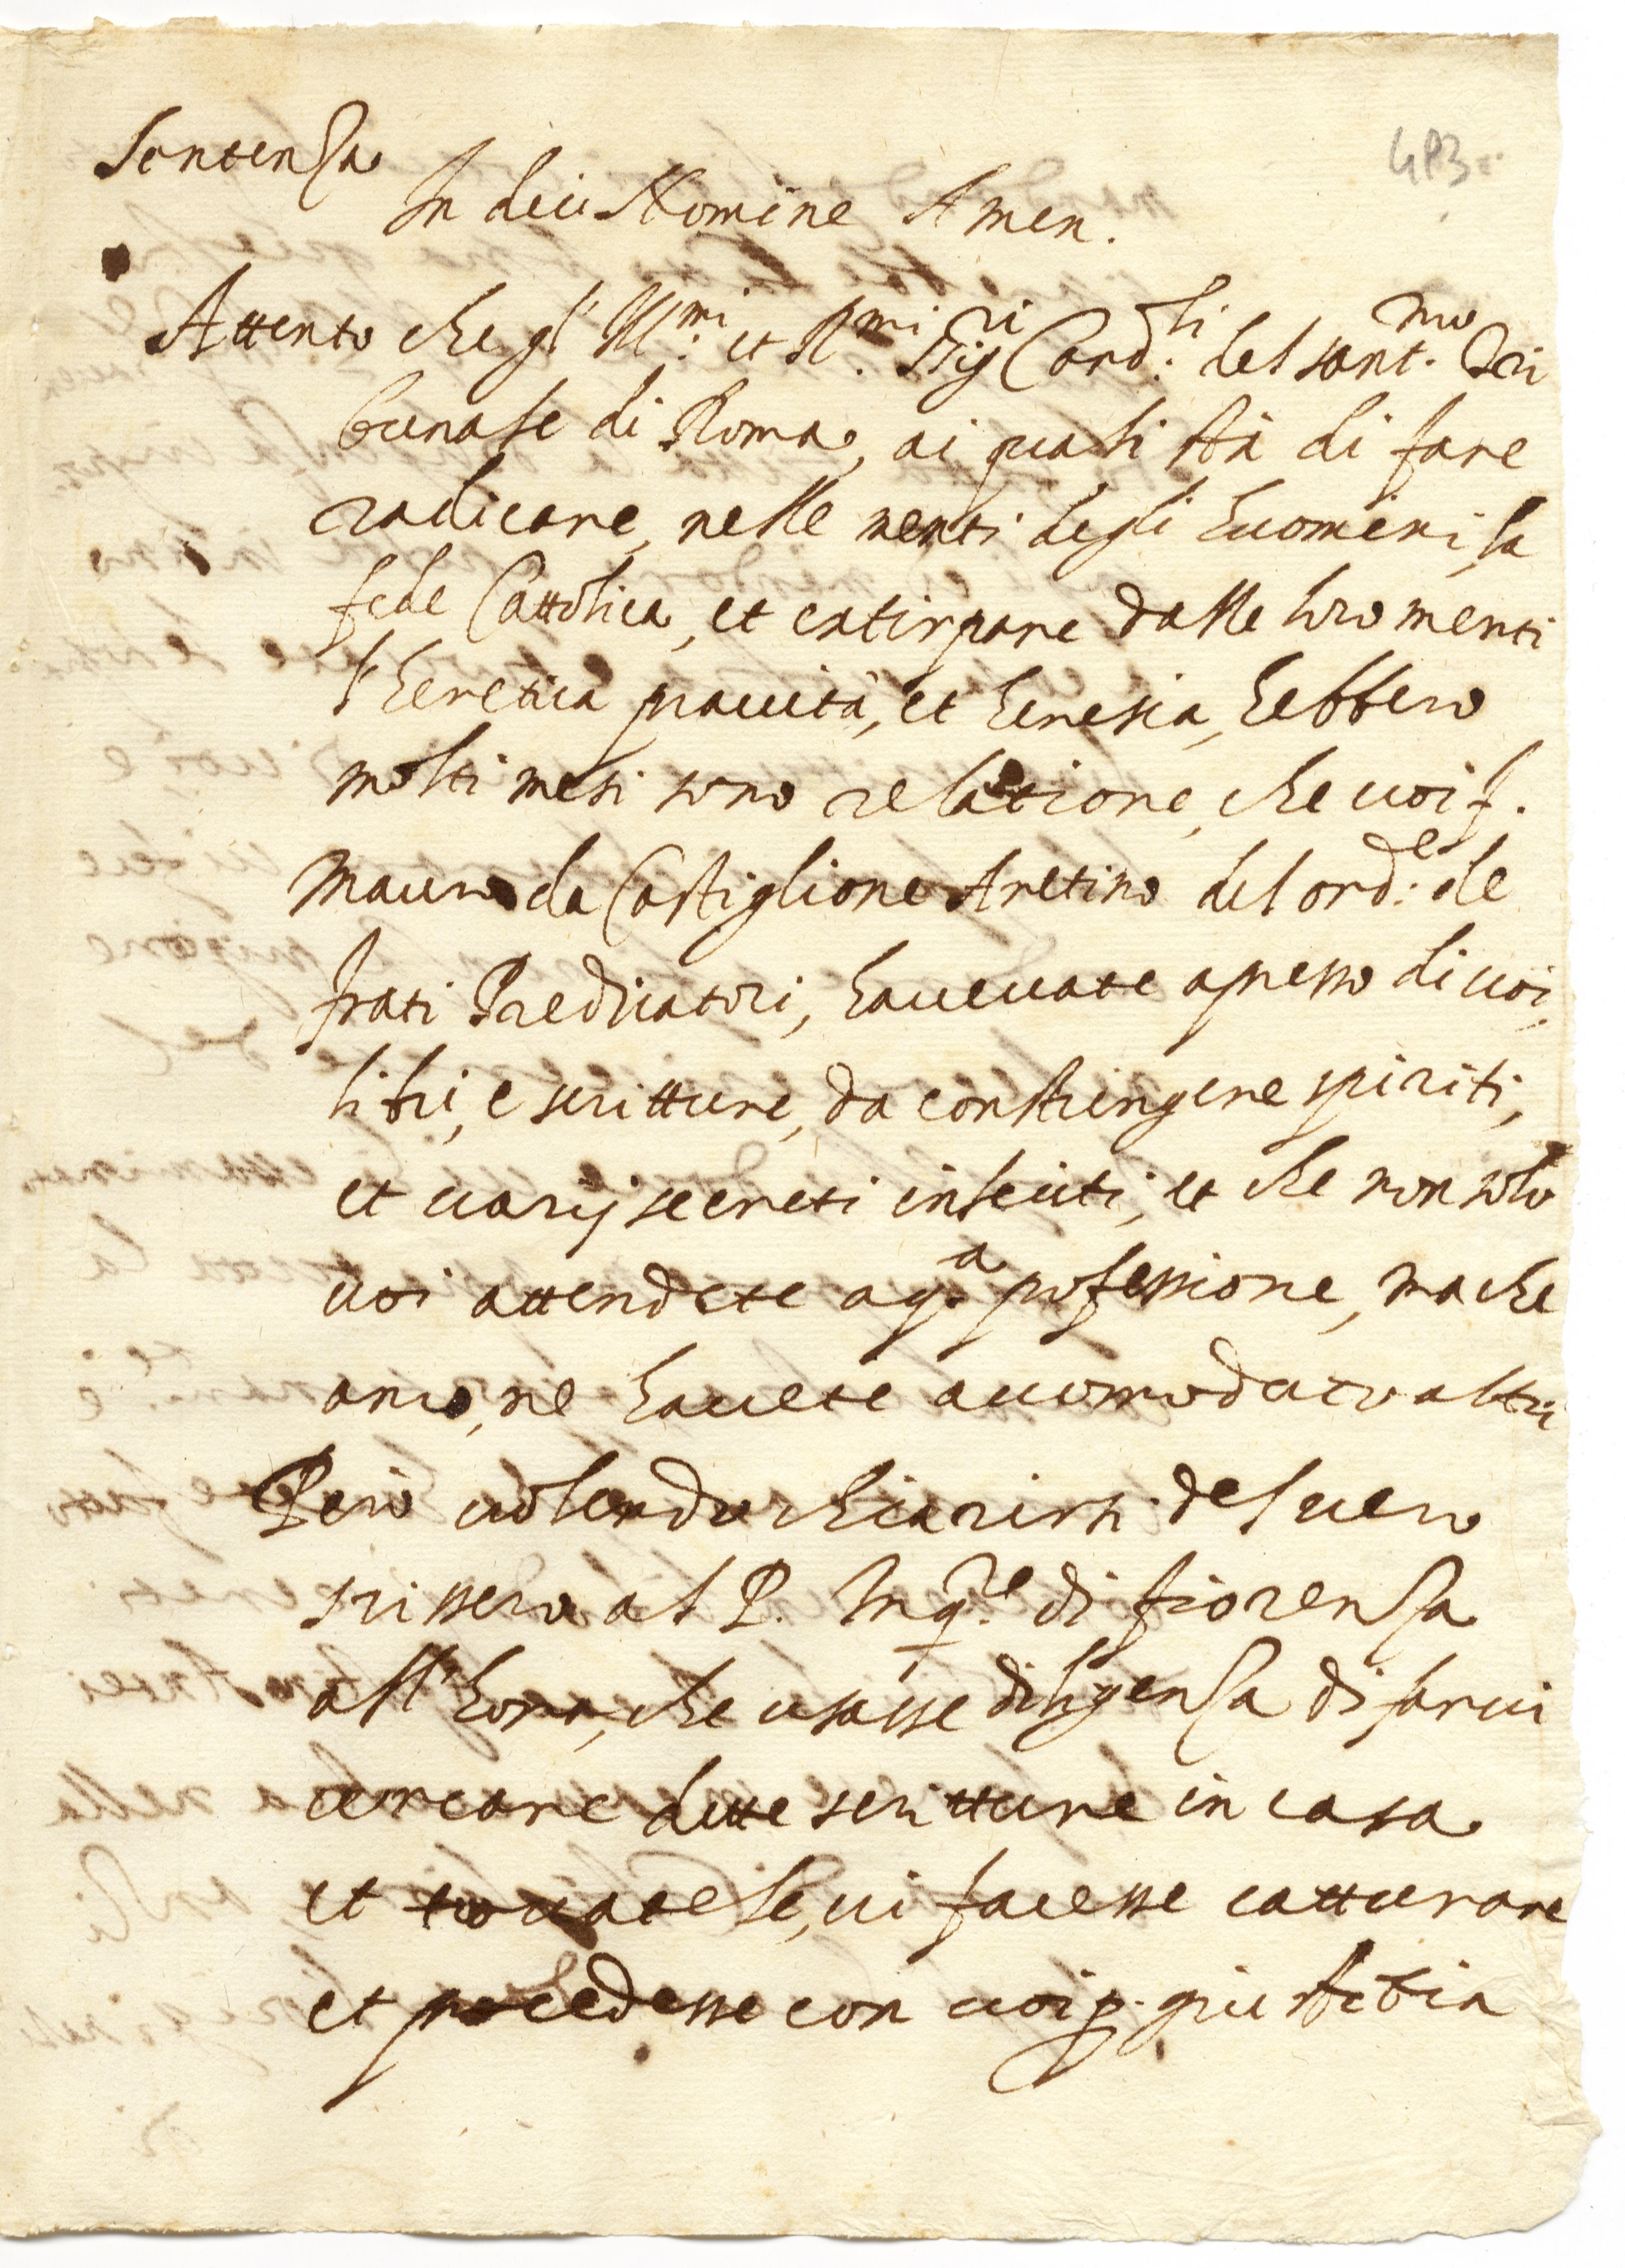 Sentenza
483
In dei Nomine Amen.
Attento che gl' Ill:mi et R.mi Sigri Card:li del sant.mo Tri
bunale di Roma, ai quali stà di fare
radicare, nelle menti degli huomini, la
fede Cattolica, et extirpare dalle loro menti
l'heretica pravità, et heresia, hebbero
molti mesi sono relatione, che voi f.
Mauro da Castiglione Aretino del ord:e de
frati Predicatori, havevate apresso di voi,
libri, e scritture, da constringere spiriti,
et varij secreti inleciti, et che non solo
voi attendete a q.a professione, ma che
anco, ne havete accomodato altri
Però volendo chiarirsi del vero
scrissero al P. Inq.re di fiorenza
all'hora, che usasse diligenza di farvi
cercare dette scritture in casa
et trovatele, vi facesse catturare
et procedesse con voi p. giustitia